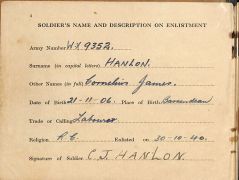 SOLDIER'S NAME AND DESCRIPTION ON ENLISTMENT
Army Number WX 9352.
Surname (in capital letters) HANLON.
Other Names (in full) Cornelius James.
Date of Birth 21-11-06. Place of Birth
Trade or Calling Labourer
Religion R.C. Enlisted on 30-10-40.
Signature of Soldier C J HANLON.